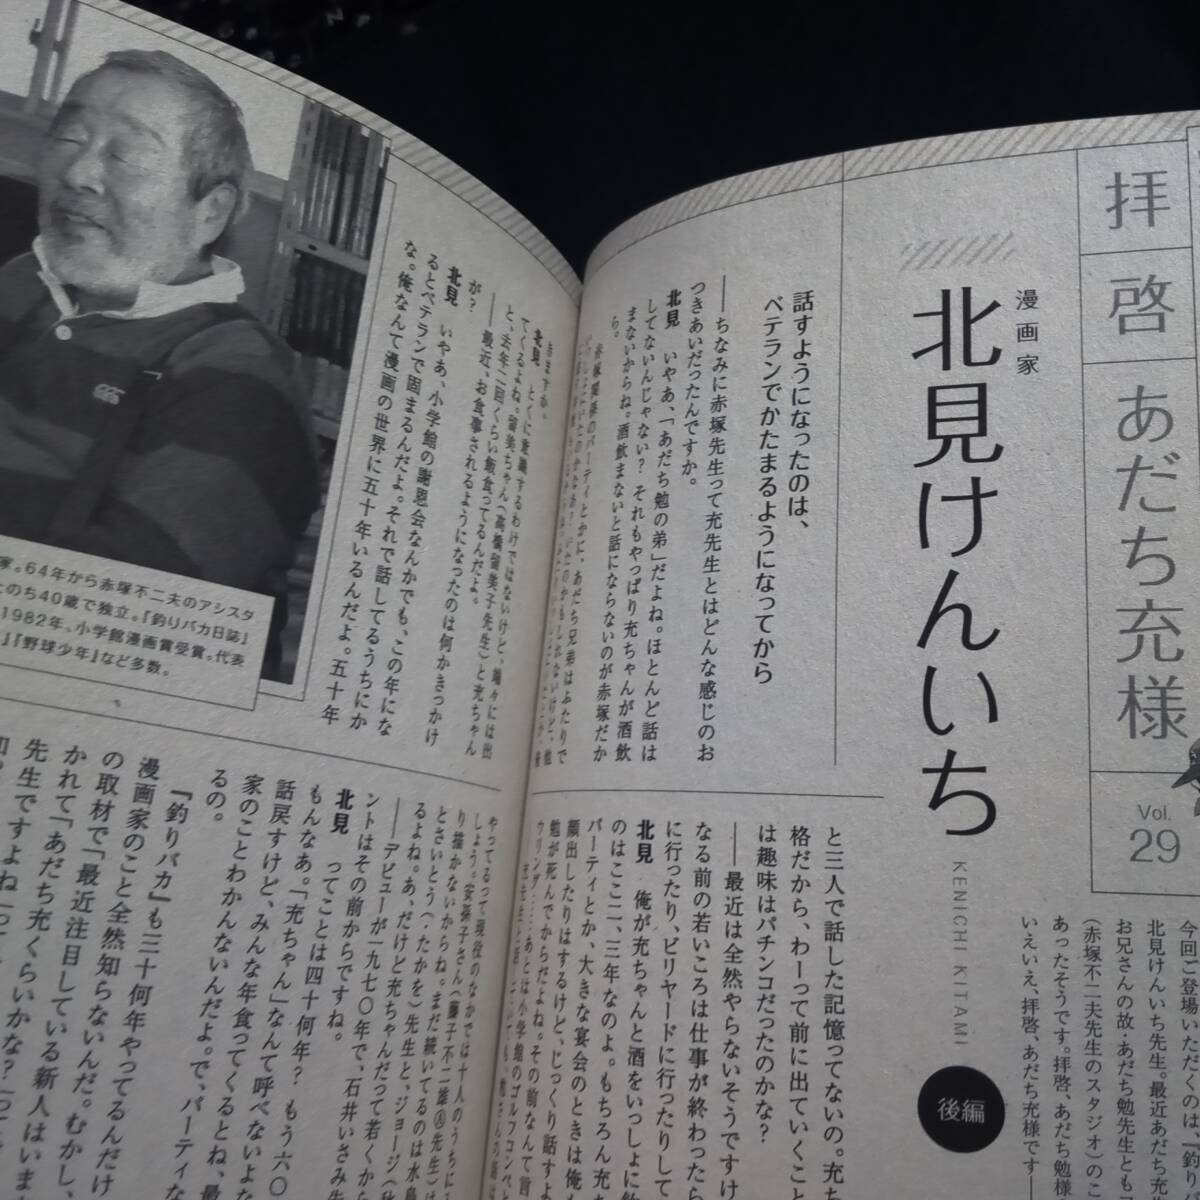 拝啓 あだち充様
Vol.
29
漫画家
北見けんいち
KENICHI KITAMI
後編
今回ご登場いただくのは、『釣り
北見けんいち先生。最近あだち充
お兄さんの故・あだち勉先生とも
(赤塚不二夫先生のスタジオ)のこ
あったそうです。拝啓、あだち勉様
いえいえ、拝啓、あだち充様です―
話すようになったのは、
ベテランでかたまるようになってから
――ちなみに赤塚先生って充先生とはどんな感じのお
つきあいだったんですか。
北見 いやあ、「あだち勉の弟」だよね。ほとんど話は
してないんじゃない? それもやっぱり充ちゃんが酒飲
まないからね。酒飲まないと話にならないのが赤塚だか
ら。
赤塚関係のパーティとかに、あだち兄弟はふたりで
と三人で話した記憶ってないの。充ち
格だから、わーって前に出ていくこと
は趣味はパチンコだったのかな?
――最近は全然やらないそうですけ
なる前の若いころは仕事が終わったら
に行ったり、ビリヤードに行ったりして
北見 俺が充ちゃんと酒をいっしょに飲
のはここ二、三年なのよ。もちろん充
パーティとか、大きな宴会のときは俺も
顔出したりはするけど、じっくり話すよ
勉が死んでからだよね。その前なんて言
北見 とくに意識するわけではないけど、端々には出
てくるよね。留美ちゃん(高橋留美子先生)と充ちゃん
と、去年二回くらい飯食ってるんだよ。
――最近、お食事されるようになったのは何かきっかけ
が?
北見 いやあ、小学館の謝恩会なんかでも、この年にな
るとベテランで固まるんだよ。それで話してるうちにか
な。俺なんて漫画の世界に五十年いるんだよ。五十年
やってるって現役のなかでは十人のうちに
しょう。安孫子さん(藤子不二雄Ⓐ先生)
り描かないからね。まだ続いてるのは水島
とさいとう(・たかを)先生と、ジョージ(秋
るよね。あ、だけど充ちゃんだって若くから
――デビューが一九七〇年で、石井いさみ先
ントはその前からですね。
北見 ってことは四十何年? もう六〇
もんなあ。「充ちゃん」なんて呼べないよな
話戻すけど、みんな年食ってくるとね、最
家のことわかんないんだよ。で、パーティな
るの。
『釣りバカ』も三十何年やってるんだけ
漫画家のこと全然知らないんだ。むかし、
の取材で「最近注目している新人はいま
かれて「あだち充くらいかな?」って
先生ですよね」っ
家。64年から赤塚不二夫のアシスタ
とのち40歳で独立。『釣りバカ日誌』
1982年、小学館漫画賞受賞。代表
』『野球少年』など多数。